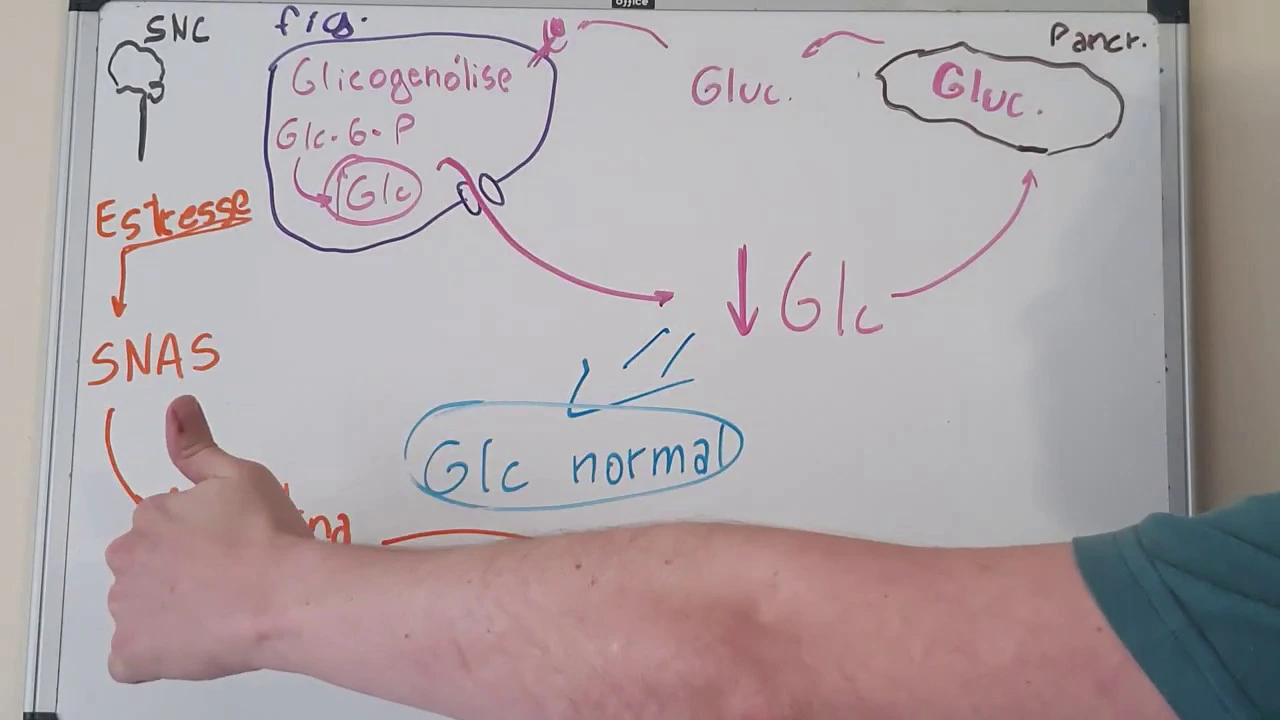 office
SNC
fig.
Pancr.
Glicogenólise
Gluc.
Gluc.
Glc-6-P
Glc
Estresse
↓ Glc
SNAS
Glc normal